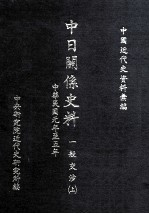 中國近代史資料彙編
中日關係史料
一般交涉(上)
中華民國元年至五年
中央研究院近代史研究所編